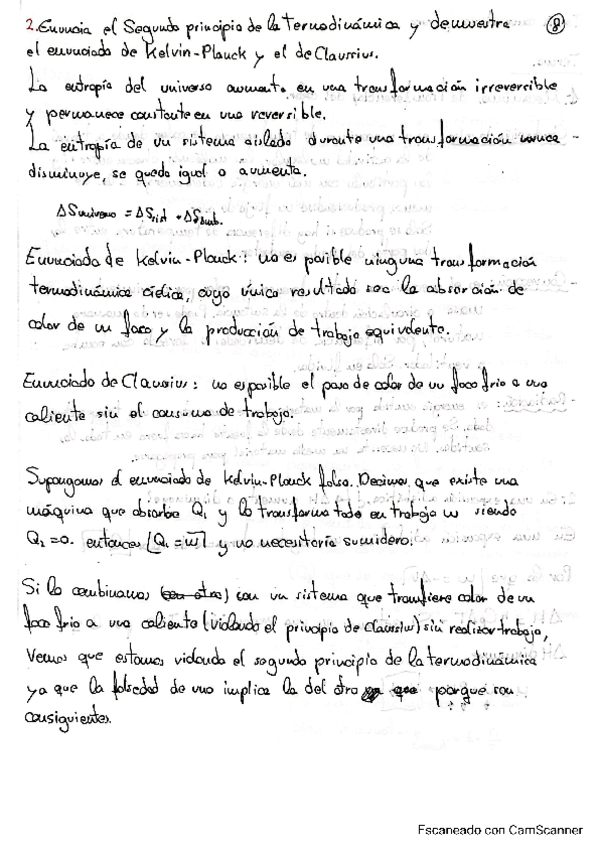 2. Enuncia el Segundo principio de la Termodinámica y demuestra 8
el enunciado de Kelvin-Planck y el de Claussius.
La entropía del universo aumenta en una transformación irreversible
y permanece constante en una reversible.
La entropía de un sistema aislado durante una transformación nunca
disminuye, se queda igual o aumenta.
ΔSuniverso = ΔSsist + ΔSamb.
Enunciado de Kelvin-Planck: no es posible ninguna transformación
termodinámica cíclica, cuyo único resultado sea la absorción de
calor de un foco y la producción de trabajo equivalente.
Enunciado de Claussius: no es posible el paso de calor de un foco frío a uno
caliente sin el consumo de trabajo.
Supongamos el enunciado de Kelvin-Planck falso. Decimos que existe una
máquina que absorba Q1 y lo transforma todo en trabajo w siendo
Q2=0. entonces |Q1 = w| y no necesitaría sumidero.
Si lo combinamos con un sistema que transfiere calor de un
foco frío a uno caliente (violando el principio de Claussius) sin realizar trabajo,
Vemos que estamos violando el segundo principio de la termodinámica
ya que la falsedad de uno implica la del otro porque son
consiguientes.
Escaneado con CamScanner